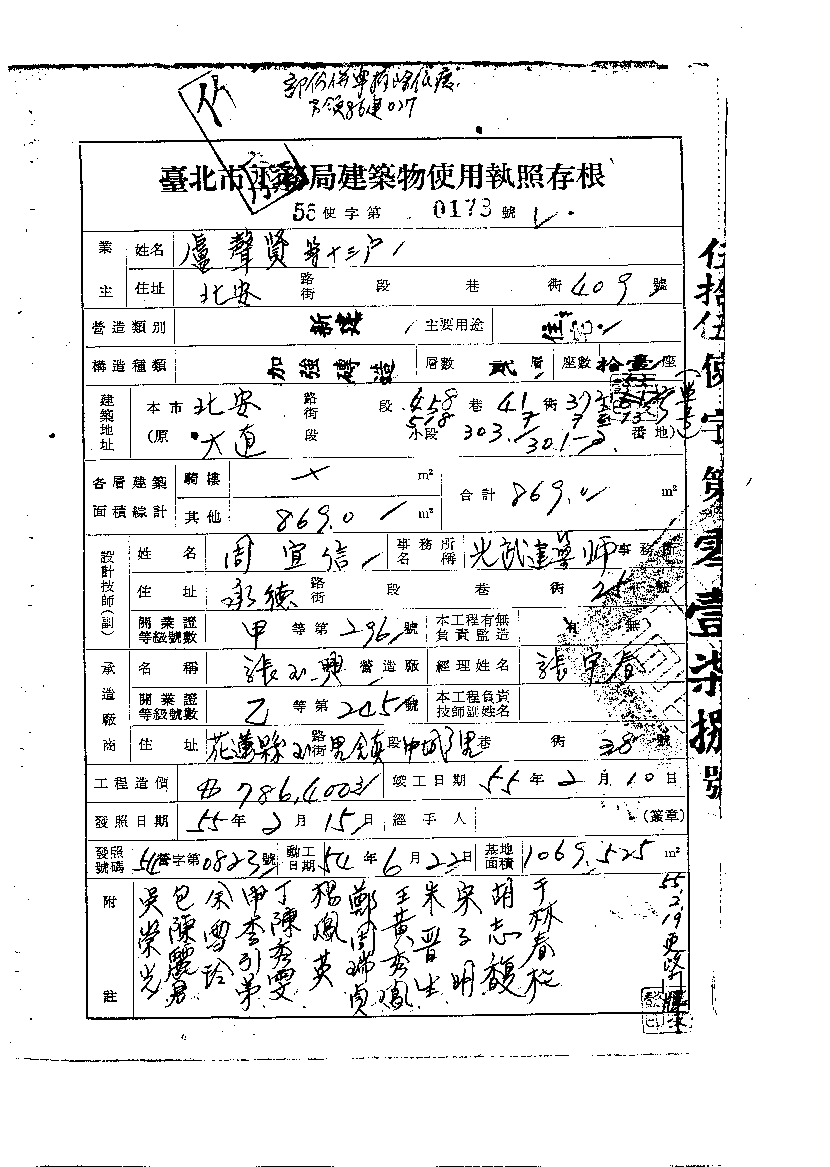 部份併單拆除作廢
另領86建027
臺北市工務局建築物使用執照存根
55使字第 0173 號
業主 姓名 盧聲賢等十三戶
住址 北安 路街 段 巷 衖 409 號
營造類別 新建 主要用途 住宅
構造種類 加強磚造 層數 貳層 座數 拾壹座
建築地址 本市 北安 路街 段 458 518 巷 41 7 衖 37
(原 大直 段 小段 303. 301-7 番地)
各層建築面積總計 騎樓 × m² 合計 869.0 m²
其他 869.0 m²
設計技師(副) 姓名 周宜信 事務所名稱 光武建築師事務所
住址 承德 路街 段 巷 衖 25 號
開業證等級號數 甲 等第 296 號 本工程有無負責監造 有 無
承造廠商 名稱 張玉興 營造廠 經理姓名 張宗春
開業證等級號數 乙 等第 245 號 本工程負責技師証姓名
住址 花蓮縣玉里鎮中城里 路街 段 巷 衖 38 號
工程造價 786,400 竣工日期 55年2月10日
發照日期 55年2月15日 經手人 (蓋章)
發照號碼 54營字第0823號 動工日期 54年6月22日 基地面積 1069.525 m²
附註
于林春松
胡志馥
宋子明
朱晋生
王黃秀鳳
鄭周瑞貞
楊鳳英
丁陳秀雯
甲李引弟
余雪玲
包陳麗君
吳榮光
55.2.19更改
伍拾伍使字第零壹柒捌號